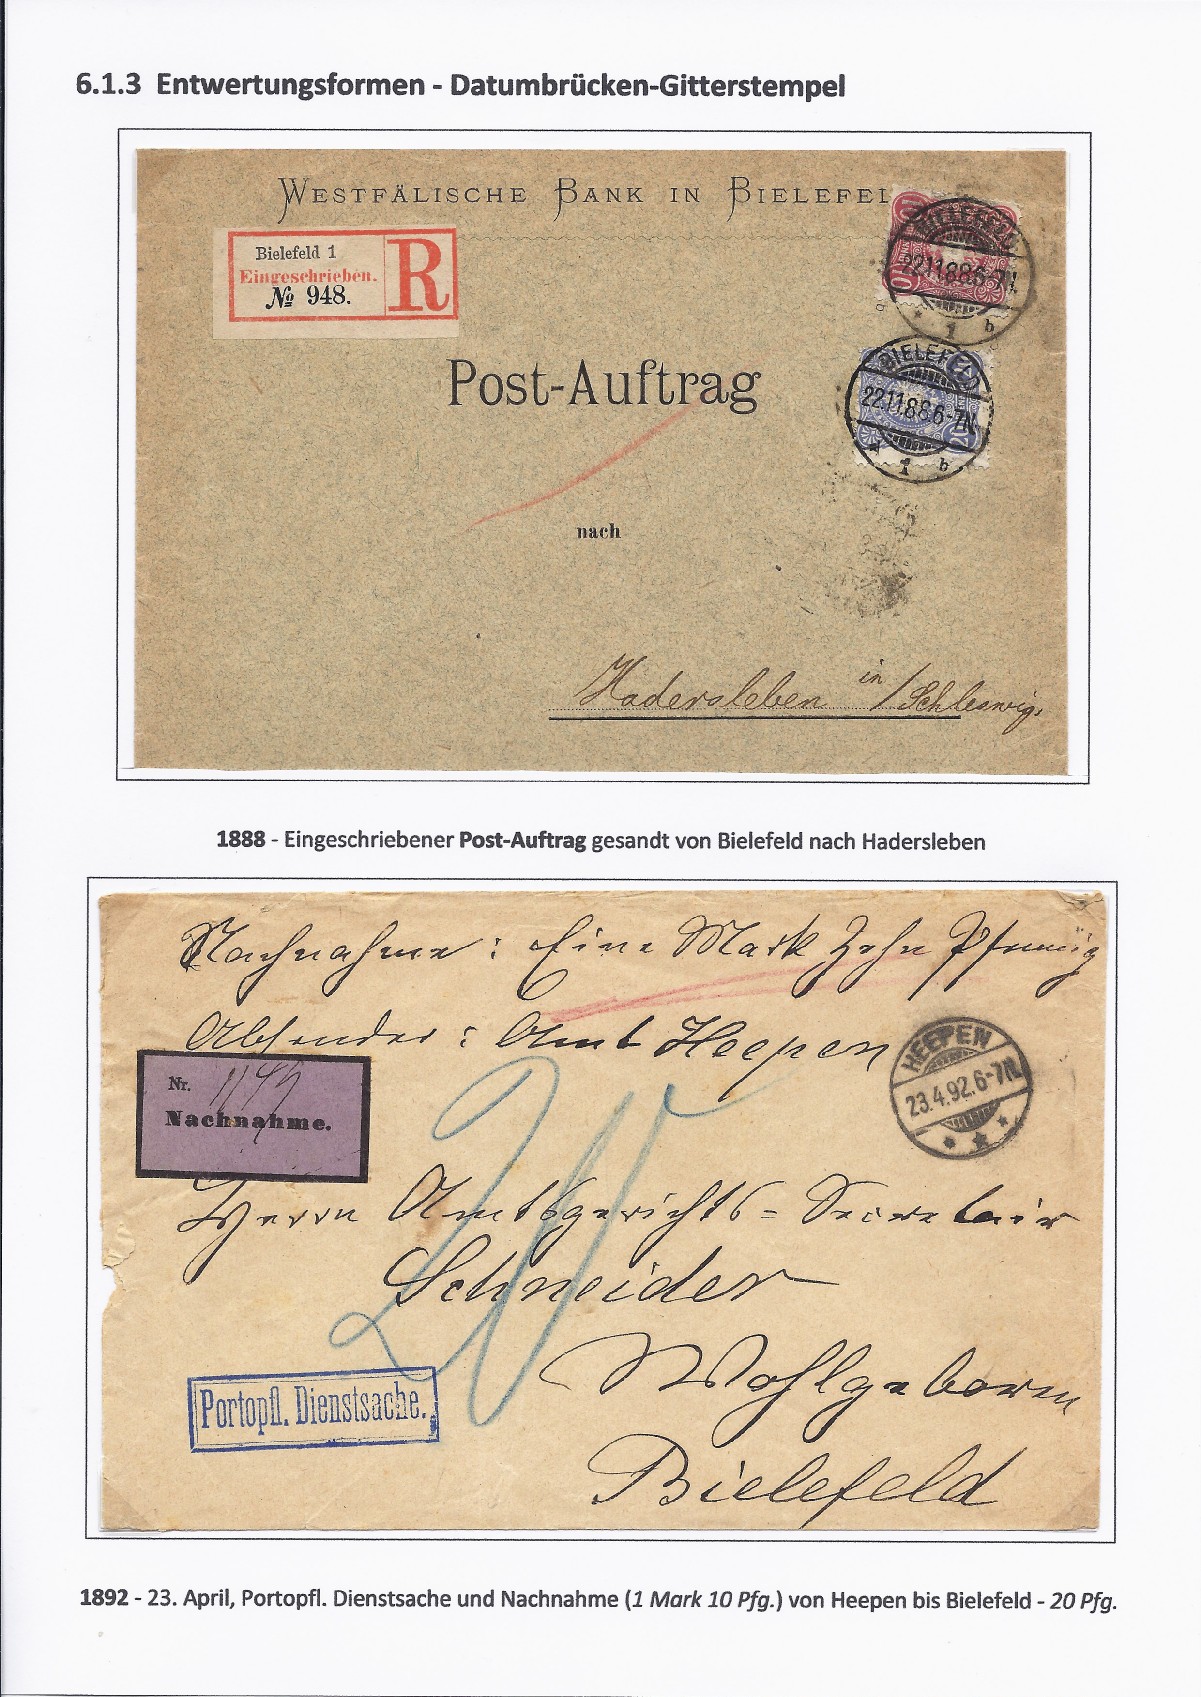 6.1.3 Entwertungsformen - Datumbrücken-Gitterstempel
WESTFÄLISCHE BANK IN BIELEFEL
Bielefeld 1
Eingeschrieben.
№ 948.
R
BIELEFELD
22.11.88.6-7N.
* 1 b
BIELEFELD
22.11.88.6-7N.
* 1 b
Post-Auftrag
nach
Hadersleben in /Schleswig.
1888 - Eingeschriebener Post-Auftrag gesandt von Bielefeld nach Hadersleben
Nachnahme: Eine Mark Zehn Pfennig
Absender: Amt Heepen
HEEPEN
23.4.92.6-7N.
Nr.
Nachnahme.
20
Herrn Amtsgerichts=Secretair
Schneider
Wohlgeboren
Portopfl. Dienstsache.
Bielefeld
1892 - 23. April, Portopfl. Dienstsache und Nachnahme (1 Mark 10 Pfg.) von Heepen bis Bielefeld - 20 Pfg.